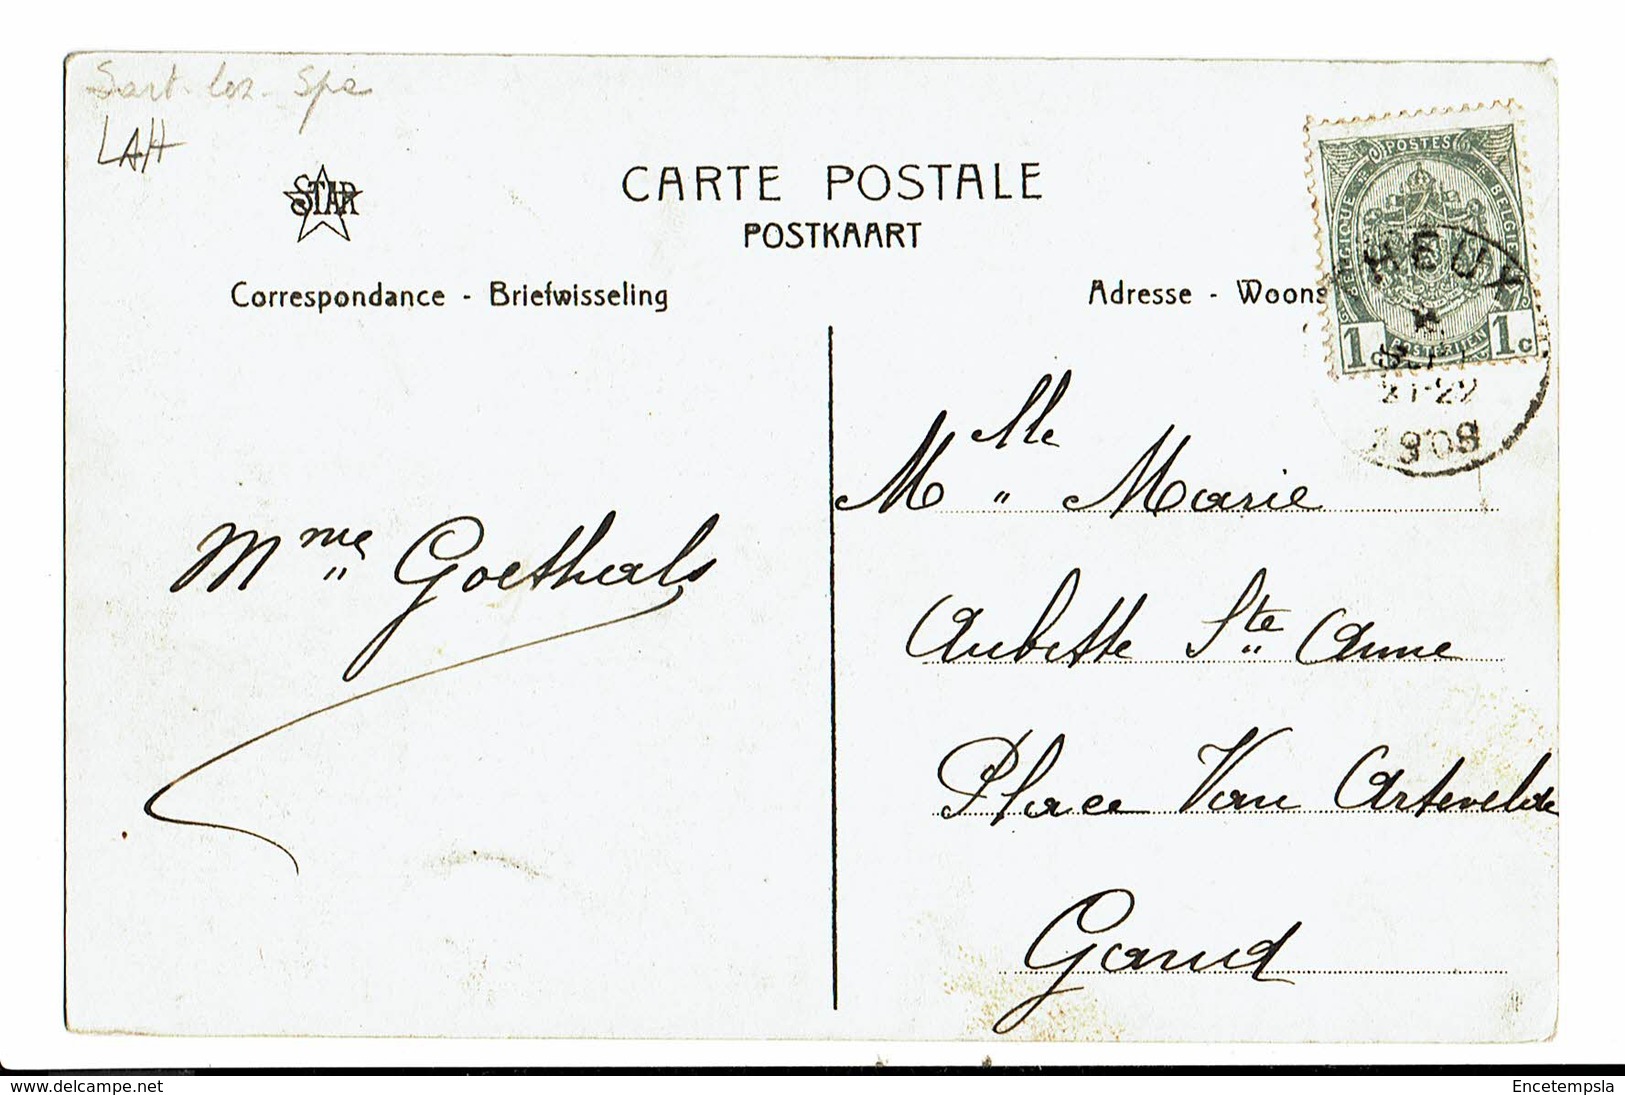 Sart-lez-Spa
LAH
STAR
CARTE POSTALE
POSTKAART
Correspondance - Briefwisseling
Adresse - Woons
POSTES
BELGIQUE
BELGIE
POSTERIJEN
1c
1c
HEUX
21-22
1908
Mlle
M " Marie
Aubette Ste Anne
Place Van Artevelde
Gand
Mme Goethals
www.delcampe.net
Encetempsla